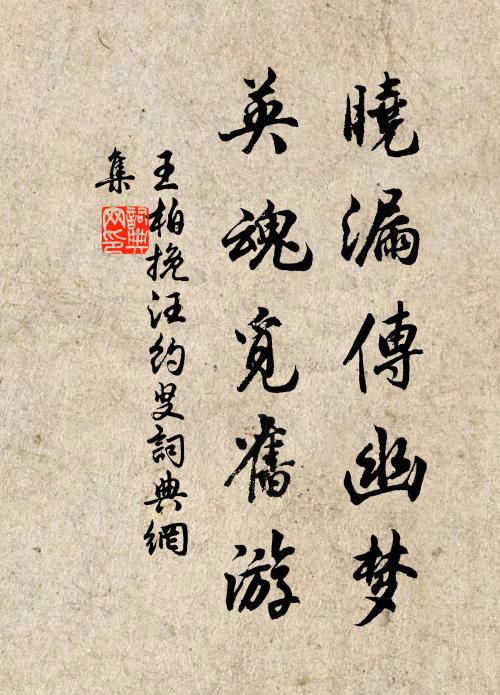 曉漏傳幽梦
英魂覓舊游
王柏挽汪約叟詞典網
集
詞典网印